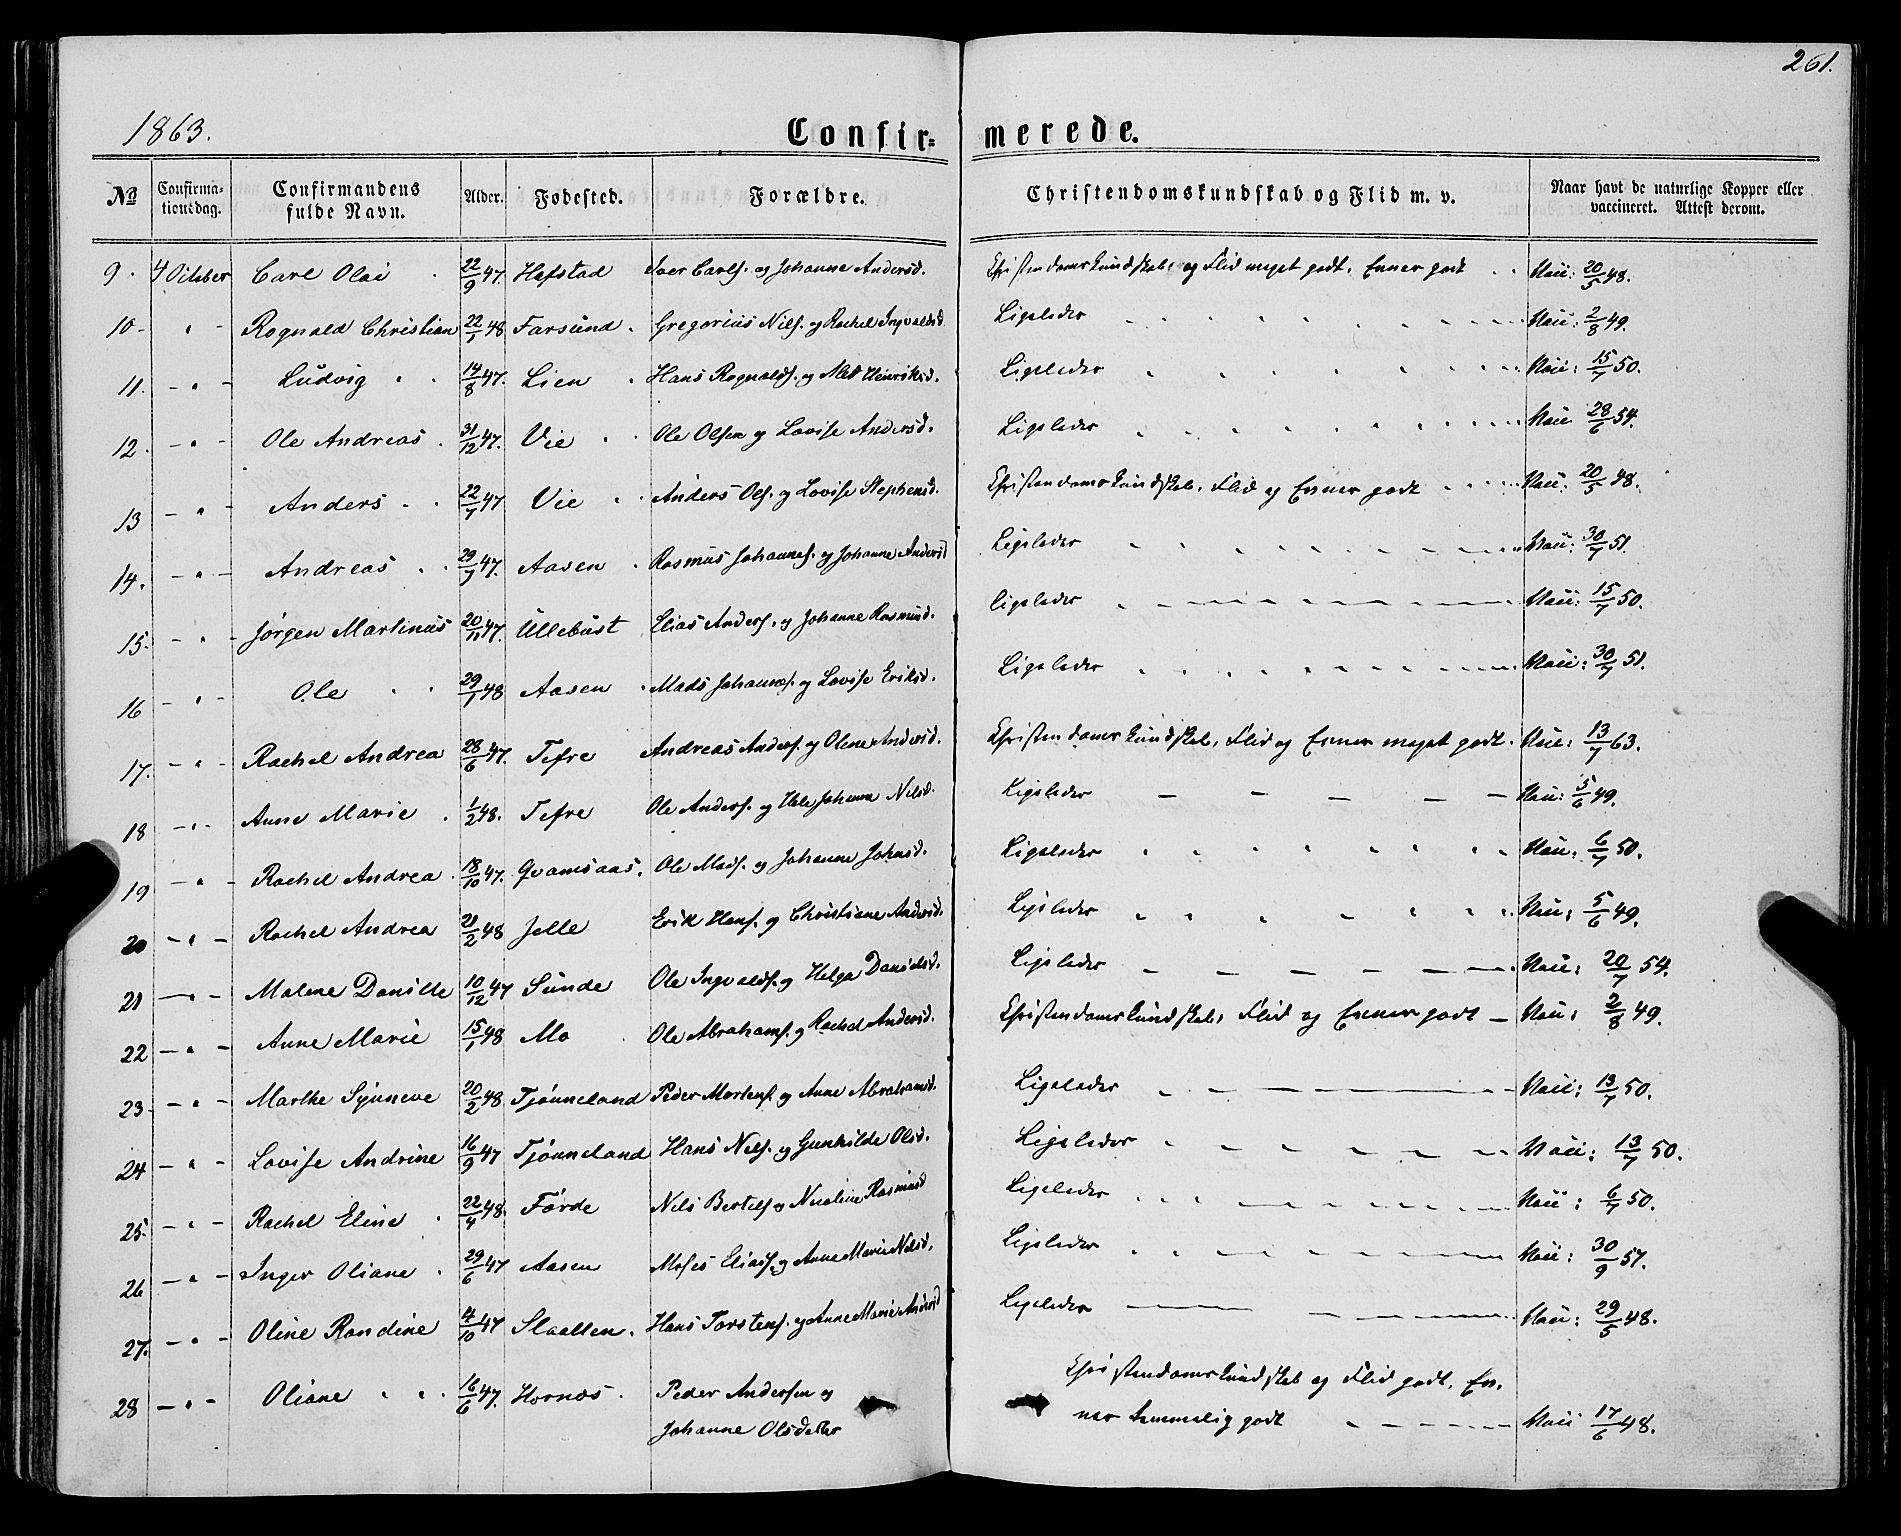 261.
1863.
Confirmerede.
No Confirmationsdag. Confirmandens fulde Navn. Alder. Fødested. Forældre. Christendomskundskab og Flid m. v. Naar havt de naturlige Kopper eller vaccineret. Attest derom.
9. 4 October Carl Olai 22/9 47. Hafstad Iver Carls. og Johanne Andersd. Christendomskundskab og Flid meget godt. Evner godt Vacc: 20/5 48.
10 - " - Rognald Christian 22/1 48 Farsund. Gregorius Nils. og Rachel Ingvaldsd. Ligeledes Vacc: 2/8 49.
11. - " - Ludvig 14/8 47. Lien Hans Rognalds. og Met Henriksd. Ligeledes Vacc: 15/7 50.
12. - " - Ole Andreas 31/12 47. Vie Ole Olsen og Lovise Andersd. Ligeledes Vacc 28/6 54.
13 - " - Anders 22/7 47 Vie Anders Ols. og Lovise Stephensd. Christendomskundskab, Flid og Evner godt Vacc: 20/5 48.
14. - " - Andreas 29/7 47. Aasen Rasmus Johannes. og Johanne Andersd Ligeledes Vacc: 30/7 51.
15. - " - Jørgen Martinus 20/11 47. Ullebust Elias Anders. og Johanne Rasmusd. ligeledes Vacc: 15/7 50.
16 - " - Ole 29/1 48 Aasen Mads Johannes. og Lovise Eriksd. Ligeledes Vacc: 30/7 51.
17. - " - Rachel Andrea 28/6 47. Tefre Andreas Anders. og Oline Andersd. Christendomskundskab, Flid og Evner meget godt. Vacc: 13/7 63.
18 - " - Anne Marie 1/2 48. Tefre Ole Anders. og Johanne Nilsd. Ligeledes Vacc: 5/6 49.
19 - " - Rachel Andrea 18/10 47. Qvamsaas. Ole Mads. og Johanne Johnsd. Ligeledes Vacc: 6/7 50.
20 - " - Rachel Andrea 21/2 48 Jelle Erik Hans. og Christiane Andersd. Ligeledes Vacc: 5/6 49.
21 - " - Malene Danille 10/12 47 Sunde Ole Ingvalds. og Helga Danielsd. Ligeledes Vacc: 20/7 54.
22 - " - Anne Marie 15/1 48 Mo Ole Abrahams. og Rachel Andersd. Christendomskundskab, Flid og Evner godt Vacc: 2/8 49.
23 - " - Marthe Synneve 20/2 48 Tjønneland Peder Mortens. og Anne Abrahamsd. Ligeledes Vacc: 13/7 50.
24 - " - Lovise Andrine 16/9 47 Tjønneland Hans Nils. og Gunhilde Olsd. Ligeledes Vacc: 13/7 50.
25. - " - Rachel Eline 22/4 48. Førde Nils Bertels. og Nicoline Rasmusd Ligeledes Vacc: 6/7 50.
26 - " - Inger Oliane 29/6 47 Aasen Moses Elias. og Anne Marie Nilsd. Ligeledes Vacc: 30/9 57.
27. - " - Oline Randine 14/10 47 Slaatten. Hans Torstens. og Anne Marie Andersd Ligeledes Vacc: 29/5 48.
28 - " - Oliane 16/6 47. Hornæs. Peder Andersen og Christendomskundskab og Flid godt, Ev-
Johanne Olsdatter ner temmelig godt Vacc 17/6 48.